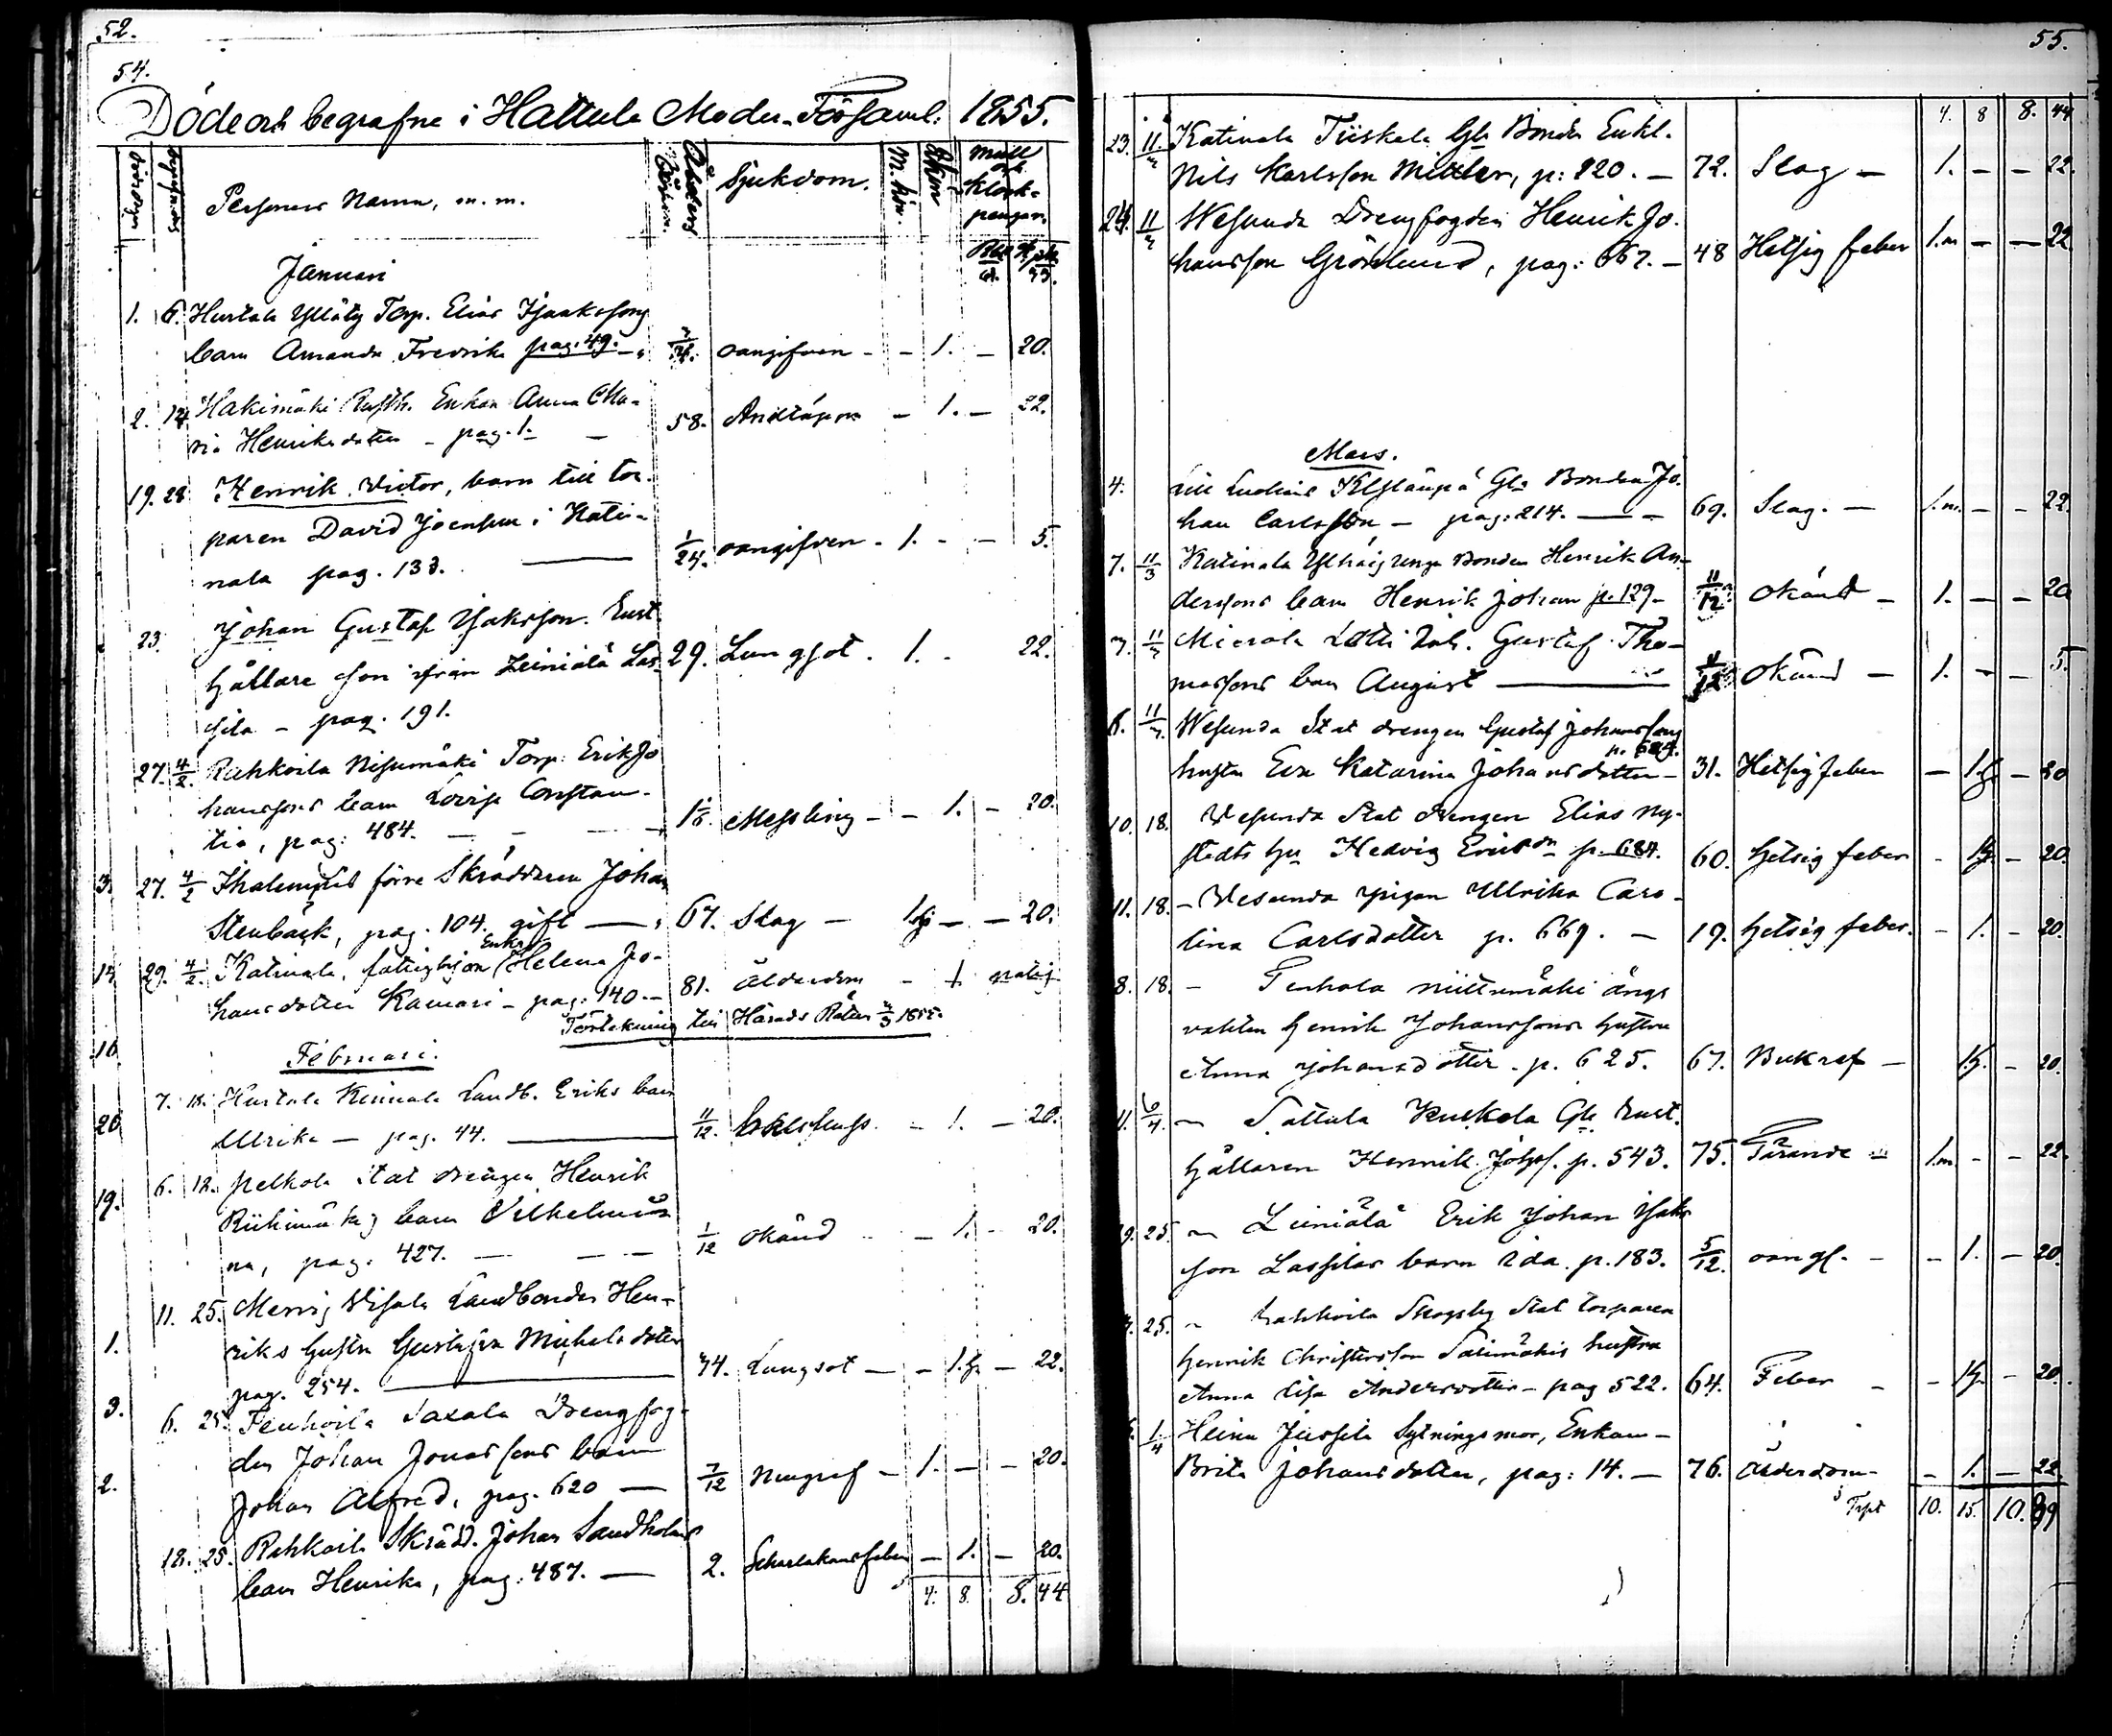 52.
54.
Döde och begrafne i Hattula Moder-Församl. 1855.
Dödsdagen
Personens Namn, m. m.
Ålders
Sjukdom.
M. kön.
Q. kön
Mull
och
Klock-
pengar.
Januari
1. 6. Hurtala Ylläty Torp. Elias Isaakssons
barn Amanda Fredrika pag. 49. oangifven - - 1. - 20.
2. 14. Hakimäki Rusth. Enkan Anna Ma-
ria Henriksdotter - pag. 1. - 58. Andtäppa - 1. - 22.
19. 28. Henrik Victor, barn till tor-
paren David Joensson i Kati-
nala pag. 133. 1/24. oangifven - 1. - - 5.
23. Johan Gustaf Isaksson. Rust-
hållare son ifrån Leiniälä Las-
sila - pag. 191. 29. Lungsot. 1. - 22.
27. 4/2 Rahkoila Nisumäki Torp. Erik Jo
hanssons barn Lovisa Constan-
tia, pag: 484. - - Messling - - 1. - 20.
3. 27. 4/2 Ihalempis förre Skräddaren Johan
Stenbäck, pag. 104. gift - 67. Slag - 1.g - - 20.
14. 29. 4/2. Katinala, fattighjon Enka Helena Jo-
hansdotter Kamari - pag: 140. - 81. ålderdom - 1.
Förteckning till Härads Rätten 3/3 1855.
16. Februari.
7. 18. Hurtala Keinala Landb. Eriks barn
20. Ulrika - pag. 44. 11/12. - 1. - 20.
6. 12. Pelkola Stat drengen Henrik
19. Riihimäkis barn Vilhelmi-
na, pag. 427. - - - 1/12 okänd - 1. - 20.
11. 25. Mervi Visala Landbonden Hen-
1. riks hustru Gustafva Michelsdotter
pag. 254. 74. Lungsot - - 1.g - 22.
3. 6. 25. Tenhoila Saxala Drengfog-
den Johan Jonassons barn
2. Johan Alfred, pag. 620 - 7/12 - 1. - - 20.
18. 25. Rahkoila Skrädd. Johan Sandholms
barn Henrika, pag. 487. - 2. Scharlakansfeber - 1. - 20.
4. 8. 8. 44
55.
4. 8 8. 44
23. 11/3 Katinala Tiiskala Gla Bonden Enkl.
Nils Karlsson Mixler, p: 120. - 72. Slag - 1. - - 22.
24. 11/3 Wesunda Drengfogden Henrik Jo-
hansson Grönlund, pag: 667. - 48 Hetsig feber 1.m - - 22
Mars.
4. Gla Bonden Jo-
han Carlsson - pag: 214. - - 69. Slag. - 1.m. - - 22.
7. 11/3 Katinala Bonden Henrik An-
derssons barn Henrik Johan p. 129 - 11/12 okänd - 1. - - 20
7. 11/3 Mierola Gustaf Tho-
massons barn August 11/12 okänd - 1. - - 5.
6. 11/3 Wesunda Stat drengen Gustaf Johanssons
p. 684.
hustru Eva Katarina Johansdotter - 31. Hetsig feber - 1.g - 20
10. 18. Wesunda Stat drengen Elias Ny-
stedts hu Hedvig Ericsdr p. 684. 60. hetsig feber - 1.g - 20.
11. 18. - Wesunda pigan Ulrika Caro-
lina Carlsdotter p. 669. - 19. hetsig feber. - 1. - 20.
8. 18. - Perhola Niittumäki ängs
vakten Henrik Johanssons hustru
Anna Johansdotter. p. 625. 67. Bukref - 1.g. - 20.
11. 6/4. - Sattula Kuskola Gla Rust-
hållaren Henrik Johss. p. 543. 75. Tärande - 1.m - - 22.
19. 25. - Leiniälä Erik Johan Isaks
son Lassilas barn Ida. p. 183. 5/12. oangf. - - 1. - 20.
25. - Rahkoila Skogsby Stat torparen
Henrik Christersson Salimäkis hustru
Anna Lisa Andersdotter - pag 522. 64. Feber - - 1.g. - 20.
1/4 Heinu Jussila Sytningsmor, Enkan -
Brita Johansdotter, pag: 14. - 76. Ålderdom - - 1. - 22
Trpt 10. 15. 10. 89